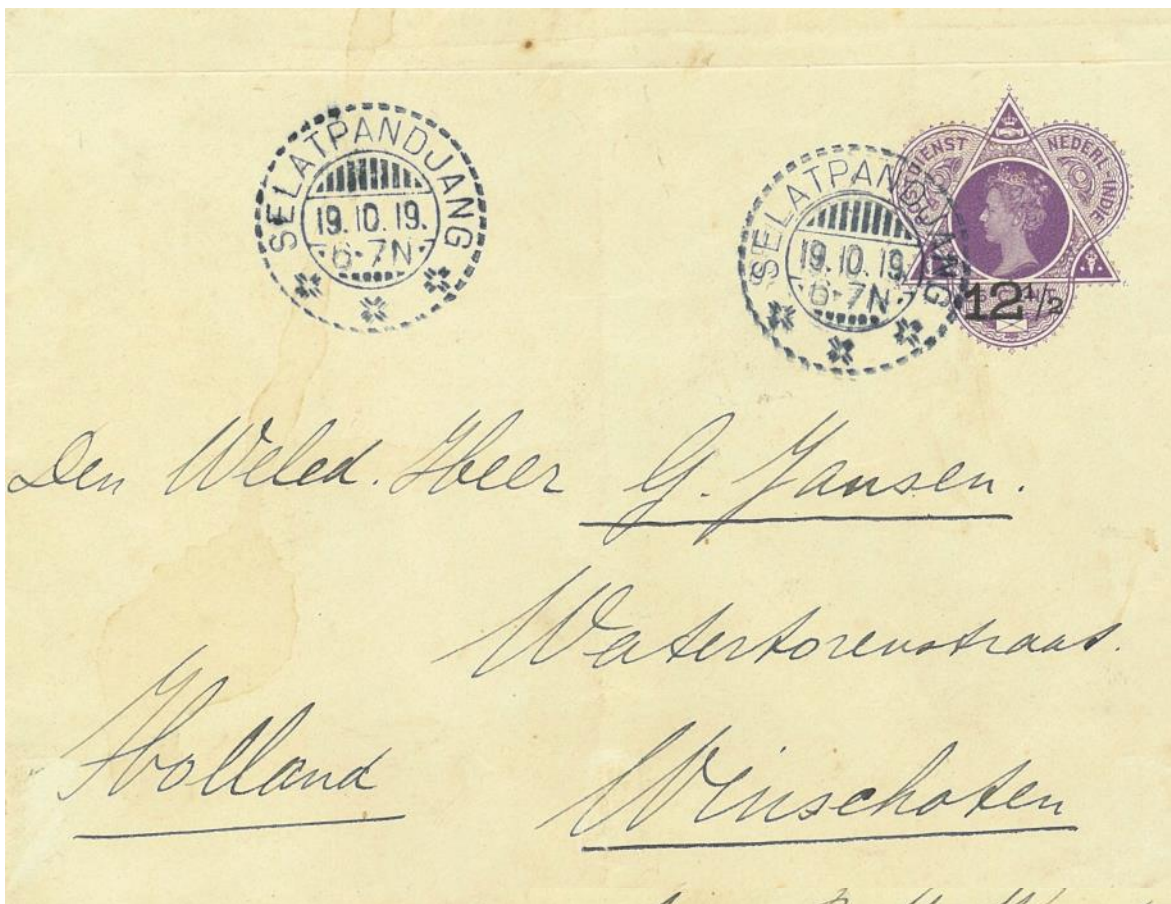 SELATPANDJANG
19.10.19.
6-7N
SELATPANDJANG
19.10.19.
6-7N
POSTDIENST NEDERL-INDIE
12 1/2
Den Weled. Heer G. Jansen.
Watertorenstraat.
Holland
Winschoten